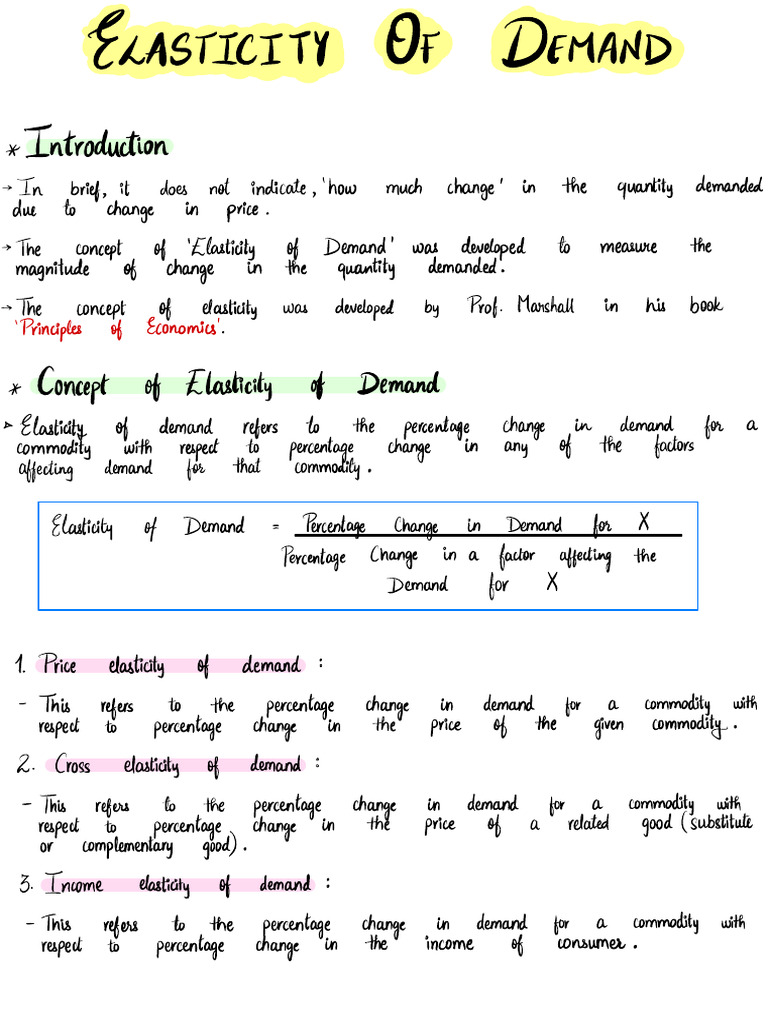 ELASTICITY OF DEMAND
* Introduction
→ In brief, it does not indicate, 'how much change' in the quantity demanded
due to change in price.
→ The concept of 'Elasticity of Demand' was developed to measure the
magnitude of change in the quantity demanded.
→ The concept of elasticity was developed by Prof. Marshall in his book
'Principles of Economics'.
* Concept of Elasticity of Demand
➢ Elasticity of demand refers to the percentage change in demand for a
commodity with respect to percentage change in any of the factors
affecting demand for that commodity.
Elasticity of Demand = Percentage Change in Demand for X
Percentage Change in a factor affecting the
Demand for X
1. Price elasticity of demand :
- This refers to the percentage change in demand for a commodity with
respect to percentage change in the price of the given commodity.
2. Cross elasticity of demand :
- This refers to the percentage change in demand for a commodity with
respect to percentage change in the price of a related good (substitute
or complementary good).
3. Income elasticity of demand :
- This refers to the percentage change in demand for a commodity with
respect to percentage change in the income of consumer.